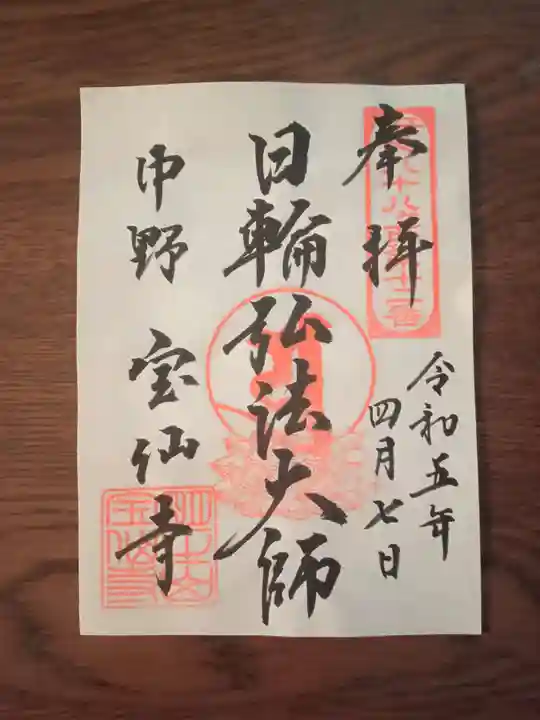 奉拝
令和五年
四月七日
日輪弘法大師
中野 宝仙寺